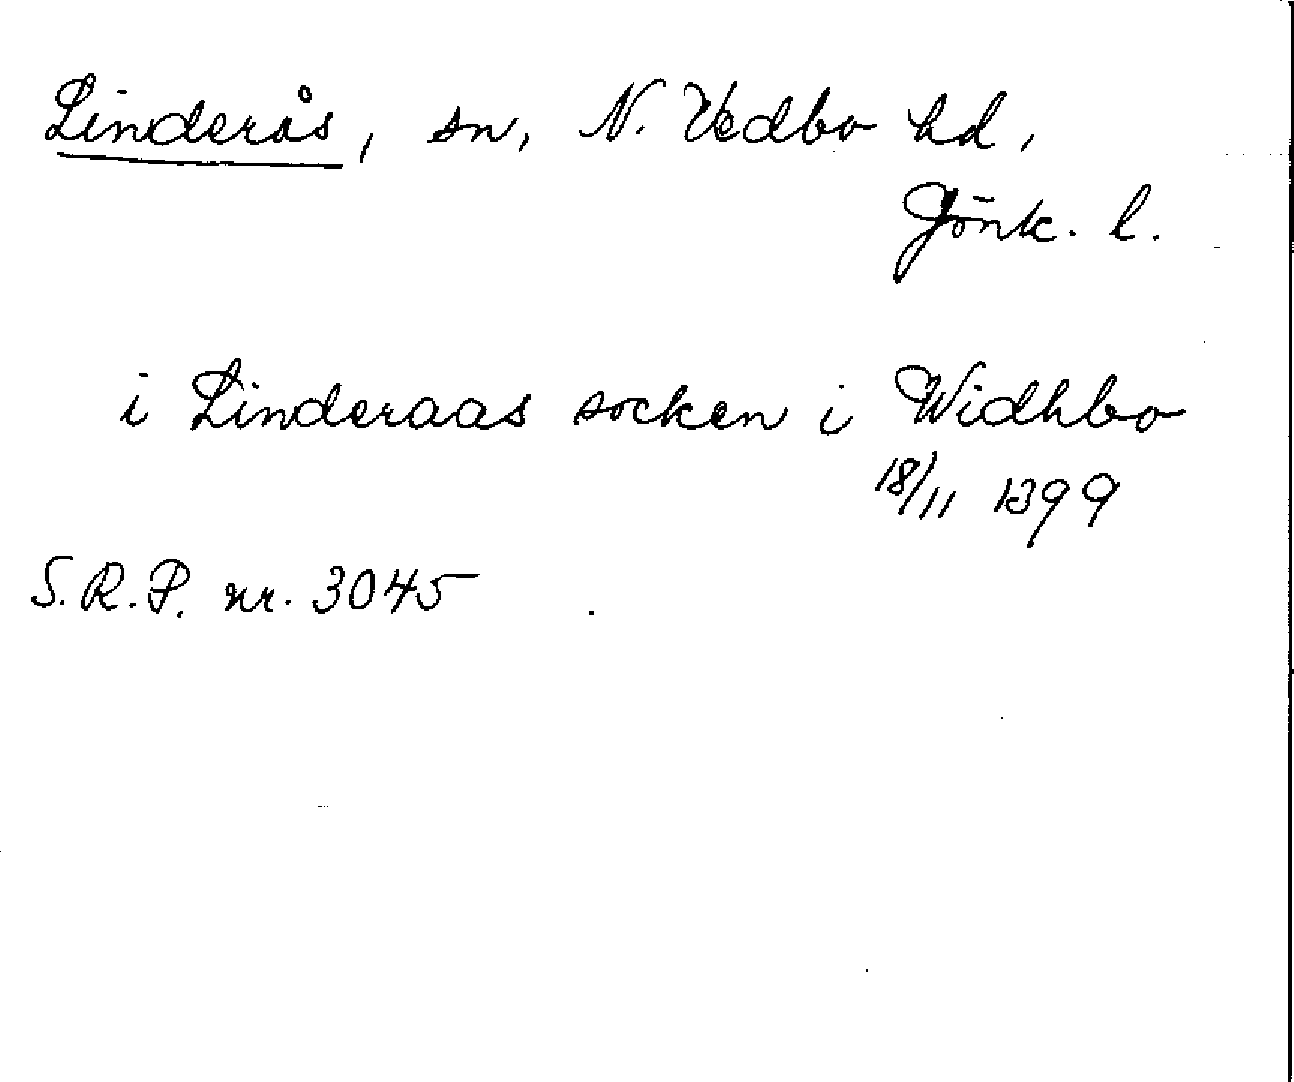 Linderås, sn, N. Vedbo hd,
Jönk. l.
i Linderaas socken i Widhbo
18/11 1399
S.R.P. nr. 3045